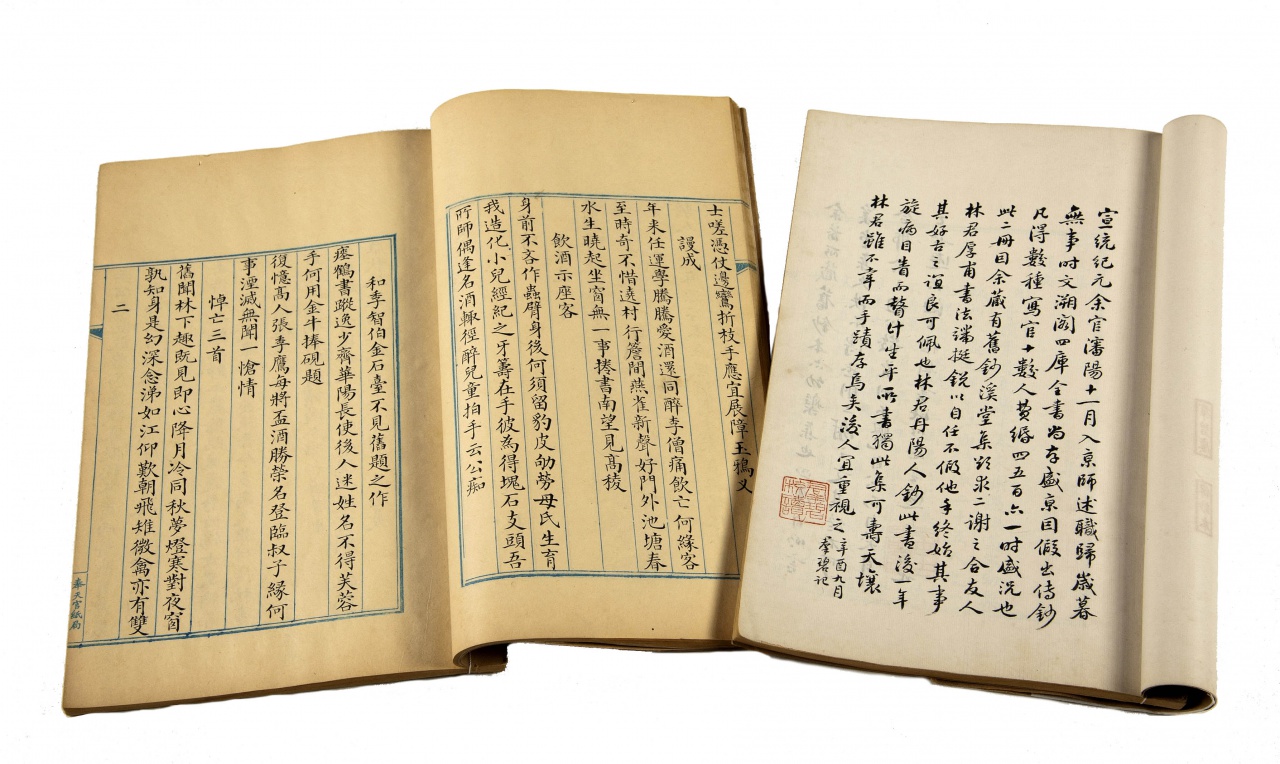 宣統紀元余官瀋陽十一月入京師述職歸歲暮
無事時文溯閣四庫全書尚存盛京因假出傳鈔
凡得數種寫官十數人費緡四五百六一時盛況也
此二冊目余藏有舊鈔溪堂集欲求二謝之合友人
林君厚甫書法端挺銳以自任不假他手終始其事
其好古之誼良可佩也林君丹陽人鈔此書後一年
旋病目眚而瞽計生平所書獨此集可壽天壤
林君雖不幸而手蹟存焉矣後人宜重視之辛酉九月
羣碧記
士嗟憑仗邊鸞折枝手應宜展障玉鴉叉
謾成
年來任運學騰騰愛酒還同醉李僧痛飲亡何緣客
至時奇不惜遶村行簷間燕雀新聲好門外池塘春
水生曉起坐窗無一事捲書南望見高稜
飲酒示座客
身前不吝作蟲臂身後何須留豹皮劬勞母氏生育
我造化小兒經紀之牙籌在手彼為得塊石支頭吾
所師偶逢名酒輒徑醉兒童拍手云公痴
和李智伯金石臺不見舊題之作
瘞鶴書蹤逸少齋華陽長使後人迷姓名不得芙蓉
手何用金牛捧硯題
復憶高人張季鷹每將盃酒勝榮名登臨叔子緣何
事湮滅無聞一愴情
悼亡三首
舊聞林下趣既見即心降月冷同秋夢燈寒對夜窗
孰知身是幻深念涕如江仰歎朝飛雉微禽亦有雙
二
奉天官紙局